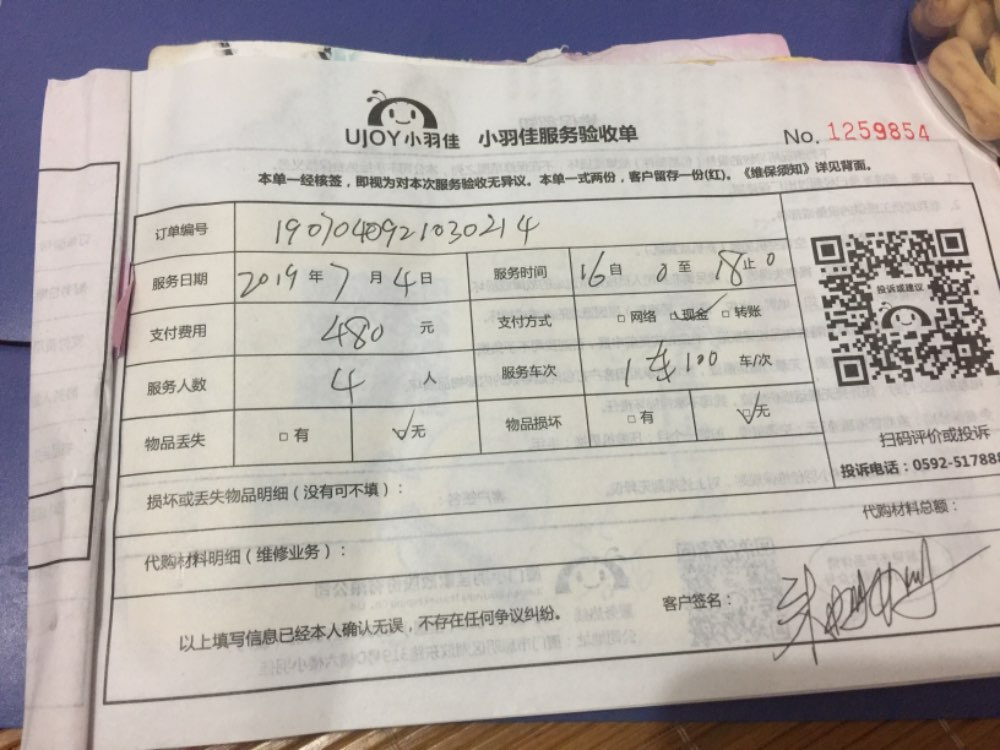 UJOY小羽佳 小羽佳服务验收单 No. 1259854
本单一经核签，即视为对本次服务验收无异议。本单一式两份，客户留存一份(红)。《维保须知》详见背面。
订单编号 1907040921030214
服务日期 2019 年 7 月 4 日 服务时间 16 自 0 至 18 止 0
投诉或建议
支付费用 480 元 支付方式 □ 网络 ☑ 现金 □ 转账
服务人数 4 人 服务车次 1车 100 车/次
物品丢失 □ 有 ☑ 无 物品损坏 □ 有 ☑ 无
扫码评价或投诉
投诉电话：0592-517888
损坏或丢失物品明细（没有可不填）：
代购材料总额：
代购材料明细（维修业务）：
客户签名：
以上填写信息已经本人确认无误，不存在任何争议纠纷。